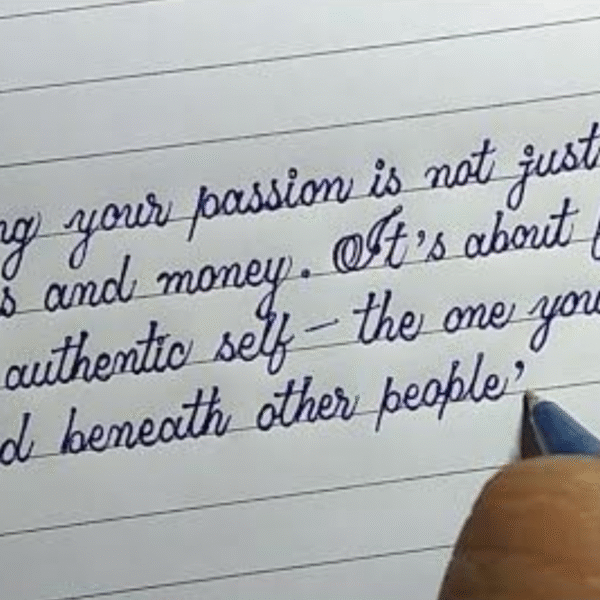 ng your passion is not just
s and money. It's about f
authentic self – the one you
d beneath other people'